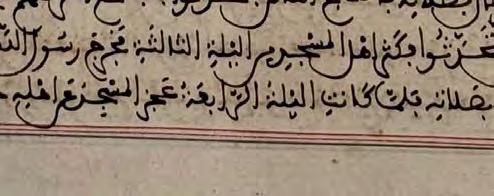 فتحدثوا فكثر اهل المسجد من الليلة الثالثة فخرج رسول الله
بصلاته فلما كانت الليلة الرابعة عجز المسجد عن اهله